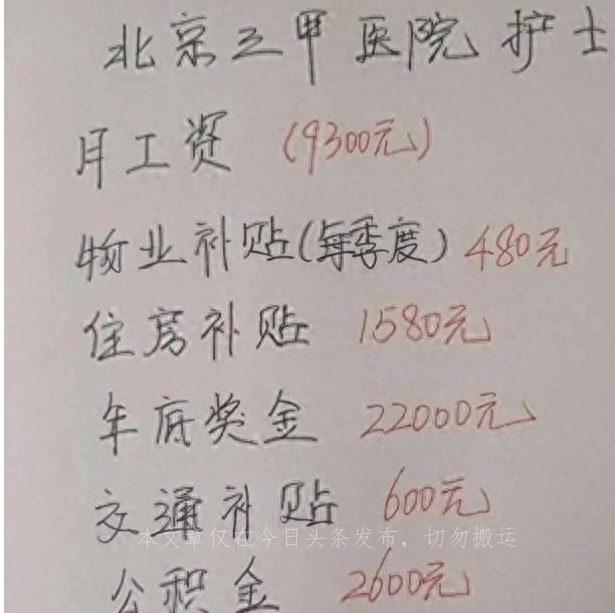 北京三甲医院护士
月工资 (9300元)
物业补贴(每季度) 480元
住房补贴 1580元
年底奖金 22000元
交通补贴 600元
本文章仅在今日头条发布，切勿搬运
公积金 2600元